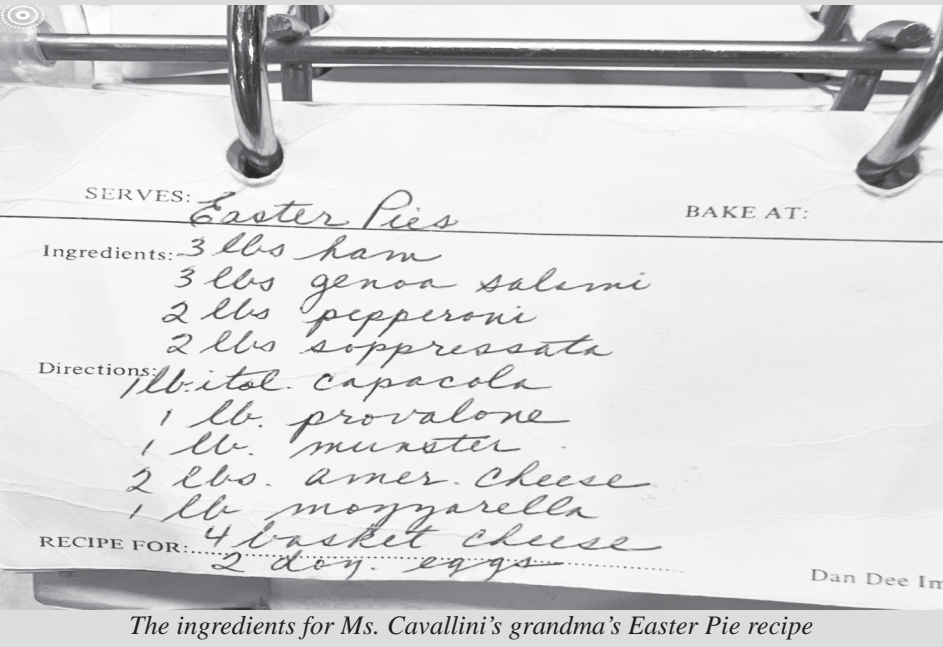 SERVES: Easter Pies
BAKE AT:
Ingredients: 3 lbs ham
3 lbs genoa salami
2 lbs pepperoni
2 lbs soppressata
Directions: 1 lb. ital. capacola
1 lb. provalone
1 lb. munster
2 lbs. amer. cheese
1 lb mozzarella
RECIPE FOR: 4 basket cheese
2 doz. eggs
Dan Dee Im
The ingredients for Ms. Cavallini's grandma's Easter Pie recipe